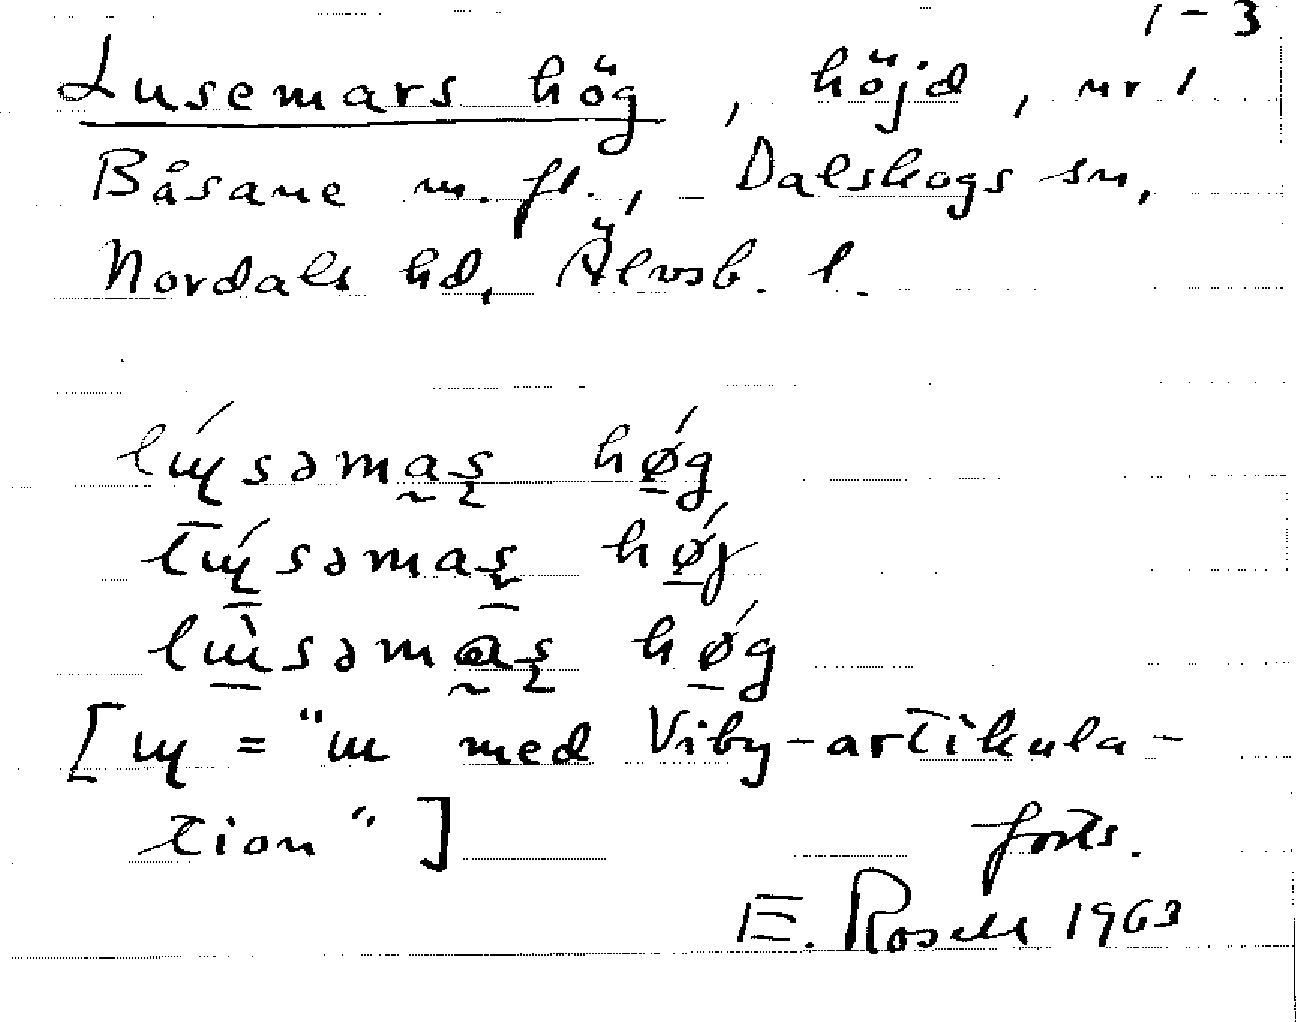 1-3
Lusemars hög, höjd, nr 1
Båsane m. fl., Dalskogs sn,
Nordals hd, Älvsb. l.
lɯ́ɥsəma̰ʂ hǿ̱g
lɯ́səmaʂ hǿ̱j
lɯ̱̀səma̰ʂ hǿ̱g
[ɰ = "ɯ med Viby-artikula-
tion"]
forts.
E. Rosell 1963